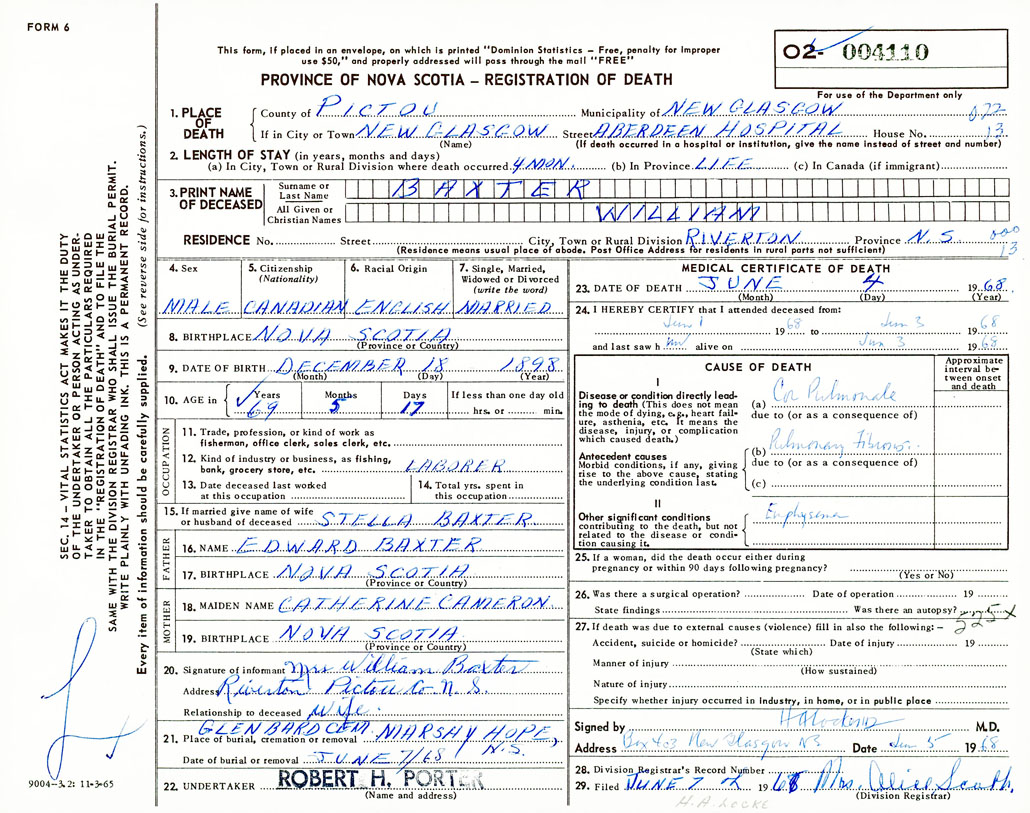 FORM 6
This form, if placed in an envelope, on which is printed "Dominion Statistics – Free, penalty for improper
use $50," and properly addressed will pass through the mail "FREE"
PROVINCE OF NOVA SCOTIA – REGISTRATION OF DEATH
02- 004110
For use of the Department only
SEC. 14 – VITAL STATISTICS ACT MAKES IT THE DUTY
OF THE UNDERTAKER OR PERSON ACTING AS UNDER-
TAKER TO OBTAIN ALL THE PARTICULARS REQUIRED
IN THE "REGISTRATION OF DEATH" AND TO FILE THE
SAME WITH THE DIVISION REGISTRAR WHO SHALL ISSUE THE BURIAL PERMIT.
WRITE PLAINLY WITH UNFADING INK. THIS IS A PERMANENT RECORD.
Every item of information should be carefully supplied. (See reverse side for instructions.)
1. PLACE OF DEATH
County of PICTOU Municipality of NEW GLASGOW 077
If in City or Town NEW GLASGOW Street ABERDEEN HOSPITAL House No. 13
(Name) (If death occurred in a hospital or institution, give the name instead of street and number)
2. LENGTH OF STAY (in years, months and days)
(a) In City, Town or Rural Division where death occurred 4 MON. (b) In Province LIFE (c) In Canada (if immigrant)
3. PRINT NAME OF DECEASED
Surname or Last Name BAXTER
All Given or Christian Names WILLIAM
RESIDENCE No. Street City, Town or Rural Division RIVERTON Province N.S. 000
(Residence means usual place of abode. Post Office Address for residents in rural parts not sufficient) 13
4. Sex MALE
5. Citizenship (Nationality) CANADIAN
6. Racial Origin ENGLISH
7. Single, Married, Widowed or Divorced (write the word) MARRIED
8. BIRTHPLACE NOVA SCOTIA
(Province or Country)
9. DATE OF BIRTH DECEMBER 18 1898
(Month) (Day) (Year)
10. AGE in Years 69 Months 5 Days 17 If less than one day old hrs. or min.
OCCUPATION
11. Trade, profession, or kind of work as
fisherman, office clerk, sales clerk, etc.
12. Kind of industry or business, as fishing,
bank, grocery store, etc. LABORER
13. Date deceased last worked
at this occupation
14. Total yrs. spent in
this occupation
15. If married give name of wife
or husband of deceased STELLA BAXTER
FATHER
16. NAME EDWARD BAXTER
17. BIRTHPLACE NOVA SCOTIA
(Province or Country)
MOTHER
18. MAIDEN NAME CATHERINE CAMERON
19. BIRTHPLACE NOVA SCOTIA
(Province or Country)
20. Signature of informant Mrs William Baxter
Address Riverton Pictou Co N.S.
Relationship to deceased Wife.
21. Place of burial, cremation or removal GLENBARD CEM. MARSHY HOPE, N.S.
Date of burial or removal JUNE 7/68
22. UNDERTAKER ROBERT H. PORTER
(Name and address)
9004-3.2: 11-3-65
MEDICAL CERTIFICATE OF DEATH
23. DATE OF DEATH JUNE 4 1968
(Month) (Day) (Year)
24. I HEREBY CERTIFY that I attended deceased from:
Jun 1 1968 to Jun 3 1968
and last saw him alive on Jun 3 1968
CAUSE OF DEATH
Approximate interval between onset and death
I
Disease or condition directly lead-
ing to death (This does not mean
the mode of dying, e.g., heart fail-
ure, asthenia, etc. It means the
disease, injury, or complication
which caused death.)
(a) Cor Pulmonale
due to (or as a consequence of)
Antecedent causes
Morbid conditions, if any, giving
rise to the above cause, stating
the underlying condition last.
(b) Pulmonary Fibrosis
due to (or as a consequence of)
(c)
II
Other significant conditions
contributing to the death, but not
related to the disease or condi-
tion causing it.
Emphysema
25. If a woman, did the death occur either during
pregnancy or within 90 days following pregnancy?
(Yes or No)
26. Was there a surgical operation? Date of operation 19
State findings Was there an autopsy?
525X
27. If death was due to external causes (violence) fill in also the following: –
Accident, suicide or homicide? Date of injury 19
(State which)
Manner of injury
(How sustained)
Nature of injury
Specify whether injury occurred in industry, in home, or in public place
Signed by HA Locke MD M.D.
Address Box 403 New Glasgow NS Date Jun 5 1968
28. Division Registrar's Record Number
29. Filed JUNE 7 1968 Mrs. Alice Scott.
(Division Registrar)
H.A. LOCKE